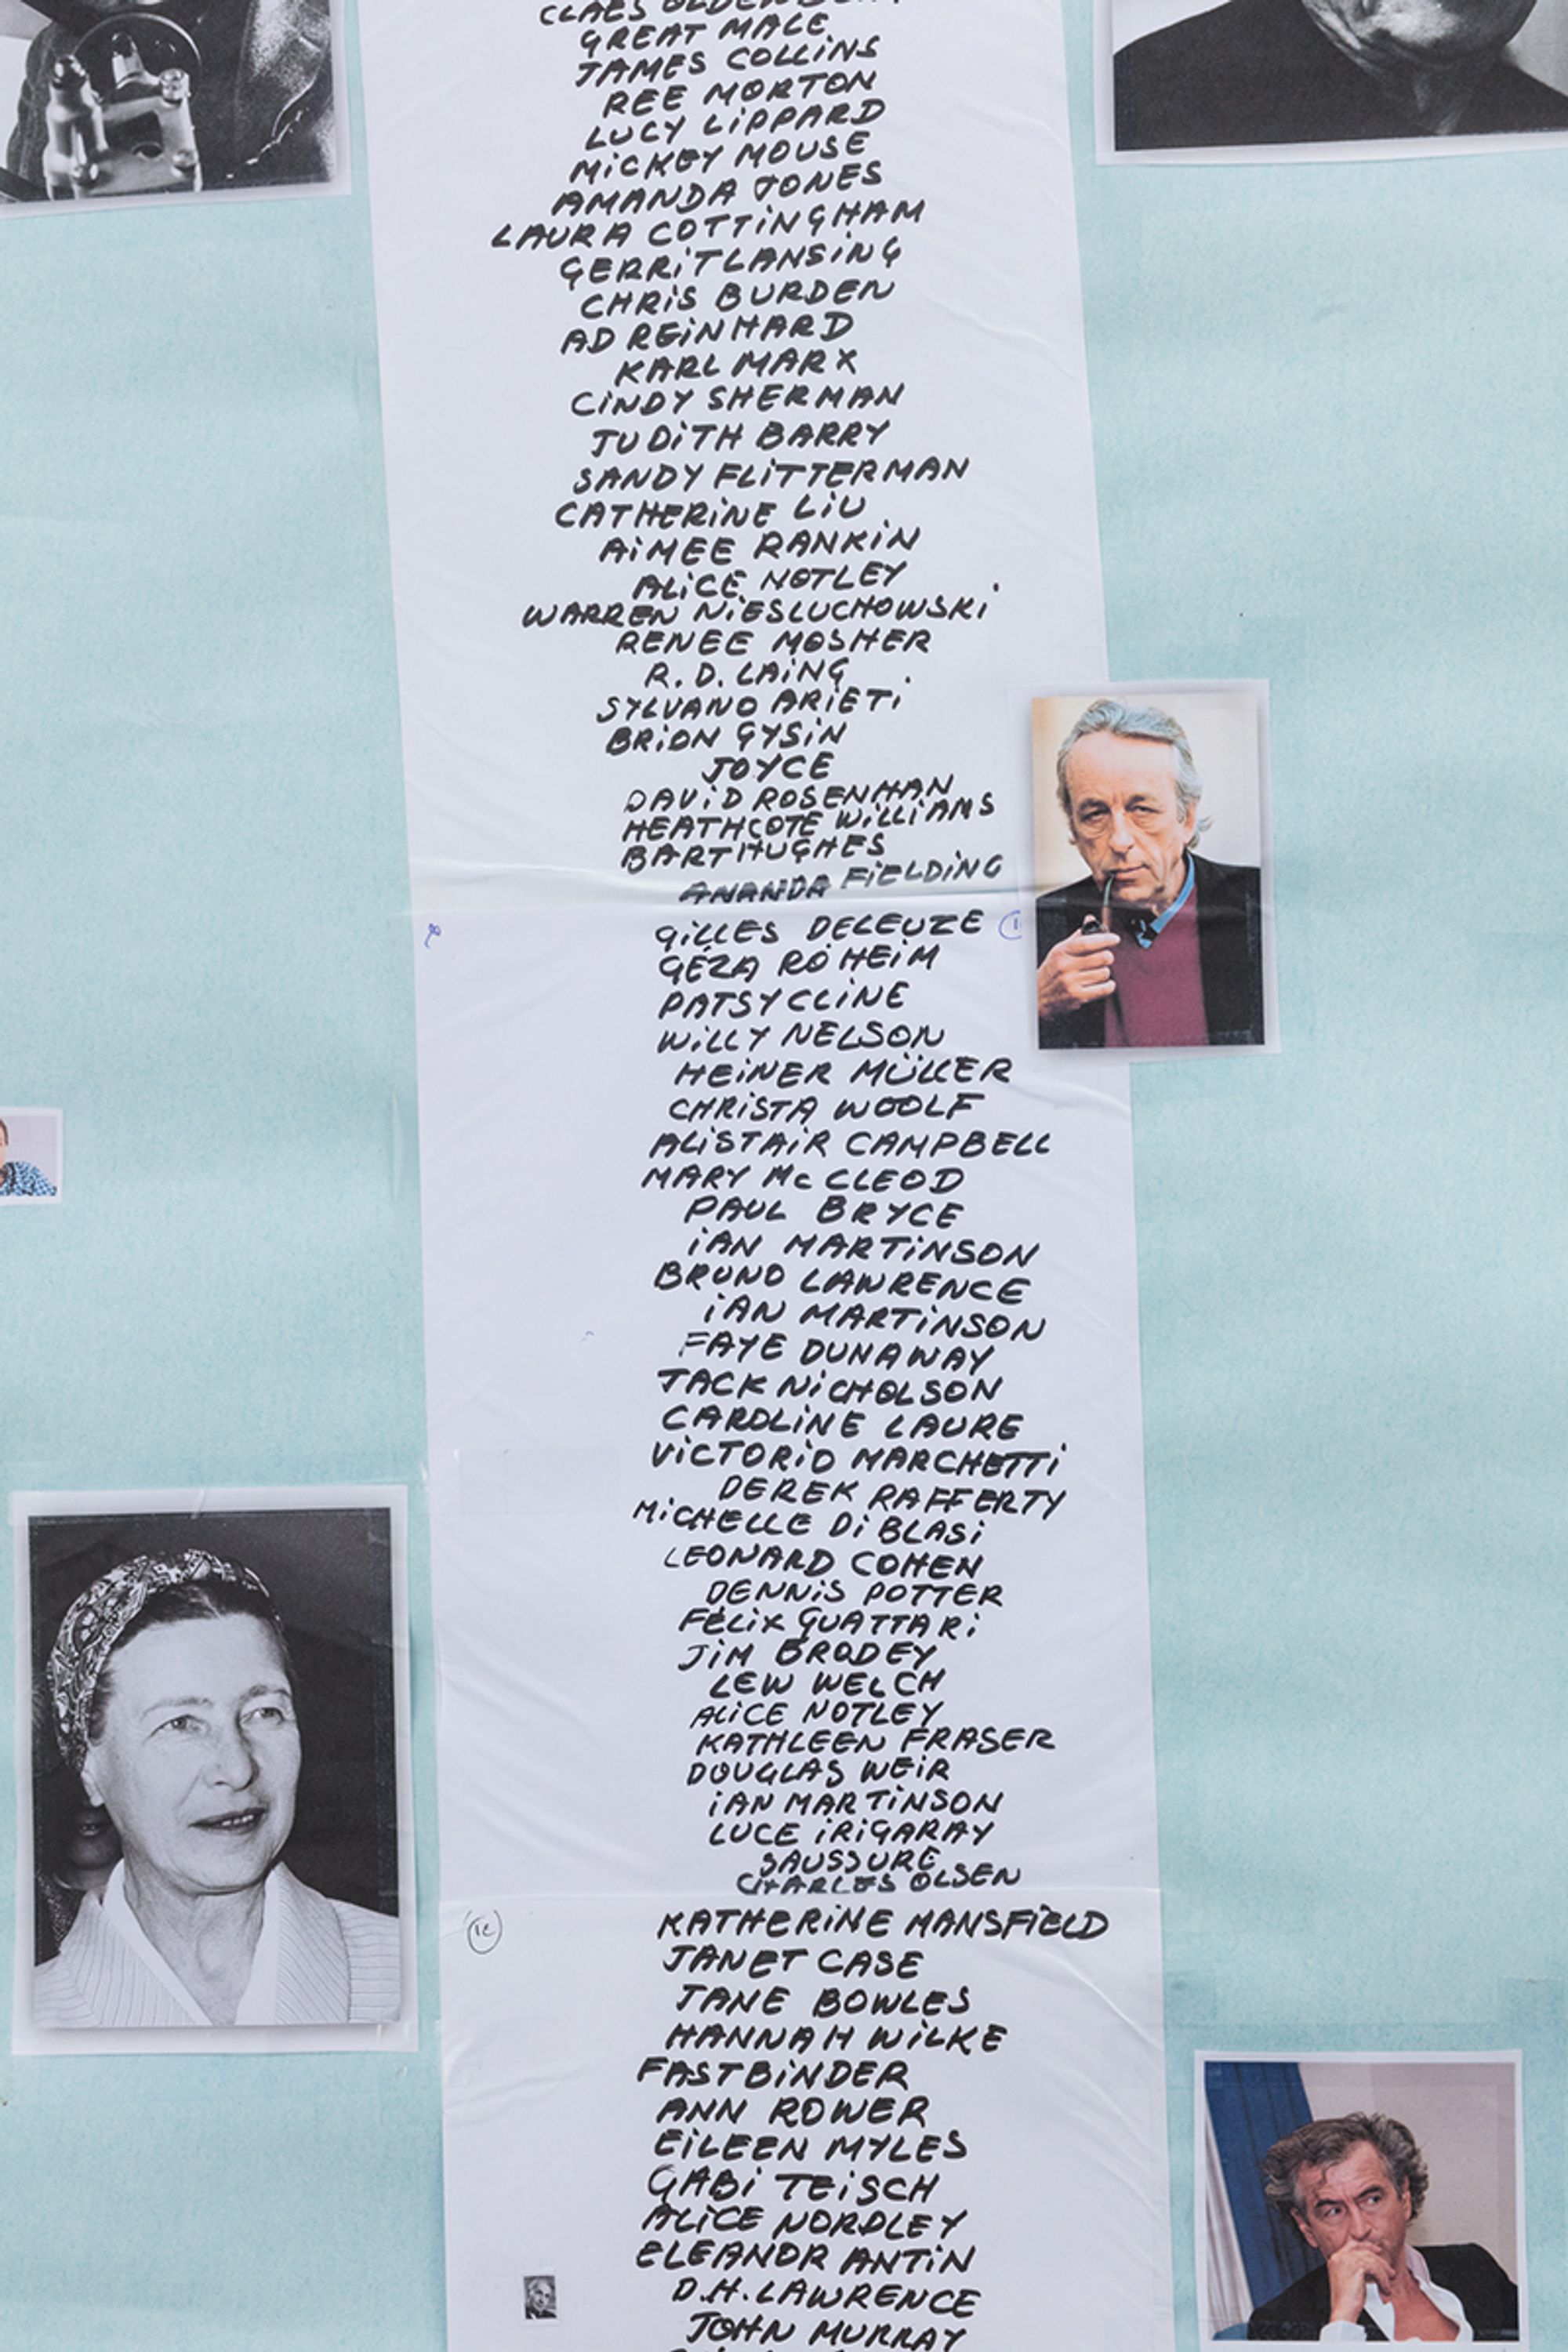 CLAES OLDENBURG
GREAT MALE
JAMES COLLiNS
REE MORTON
LUCY LiPPARD
MiCKEY MOUSE
AMANDA JONES
LAURA COTTiNGHAM
GERRiT LANSiNG
CHRiS BURDEN
AD REiNHARD
KARL MARX
CiNDY SHERMAN
JUDiTH BARRY
SANDY FLiTTERMAN
CATHERiNE LiU
AiMEE RANKiN
ALiCE NOTLEY
WARREN NiESLUCHOWSKi
RENEE MOSHER
R. D. LAiNG
SYLVANO ARiETi
BRiON GYSiN
JOYCE
DAViD ROSENHAN
HEATHCOTE WiLLiAMS
BART HUGHES
ANANDA FiELDiNG
GiLLES DELEUZE
GÉZA RÓHEiM
PATSY CLiNE
WiLLY NELSON
HEiNER MÜLLER
CHRiSTA WOOLF
ALiSTAiR CAMPBELL
MARY McCLEOD
PAUL BRYCE
iAN MARTiNSON
BRUNO LAWRENCE
iAN MARTiNSON
FAYE DUNAWAY
JACK NiCHOLSON
CAROLiNE LAURE
ViCTORiO MARCHETTi
DEREK RAFFERTY
MiCHELLE Di BLASi
LEONARD COHEN
DENNiS POTTER
FÉLiX GUATTARi
JiM BRODEY
LEW WELCH
ALiCE NOTLEY
KATHLEEN FRASER
DOUGLAS WEiR
iAN MARTiNSON
LUCE iRiGARAY
SAUSSURE
CHARLES OLSEN
KATHERiNE MANSFiELD
JANET CASE
JANE BOWLES
HANNAH WiLKE
FASTBiNDER
ANN ROWER
EiLEEN MYLES
GABi TEiSCH
ALiCE NORDLEY
ELEANOR ANTiN
D.H. LAWRENCE
JOHN MURRAY